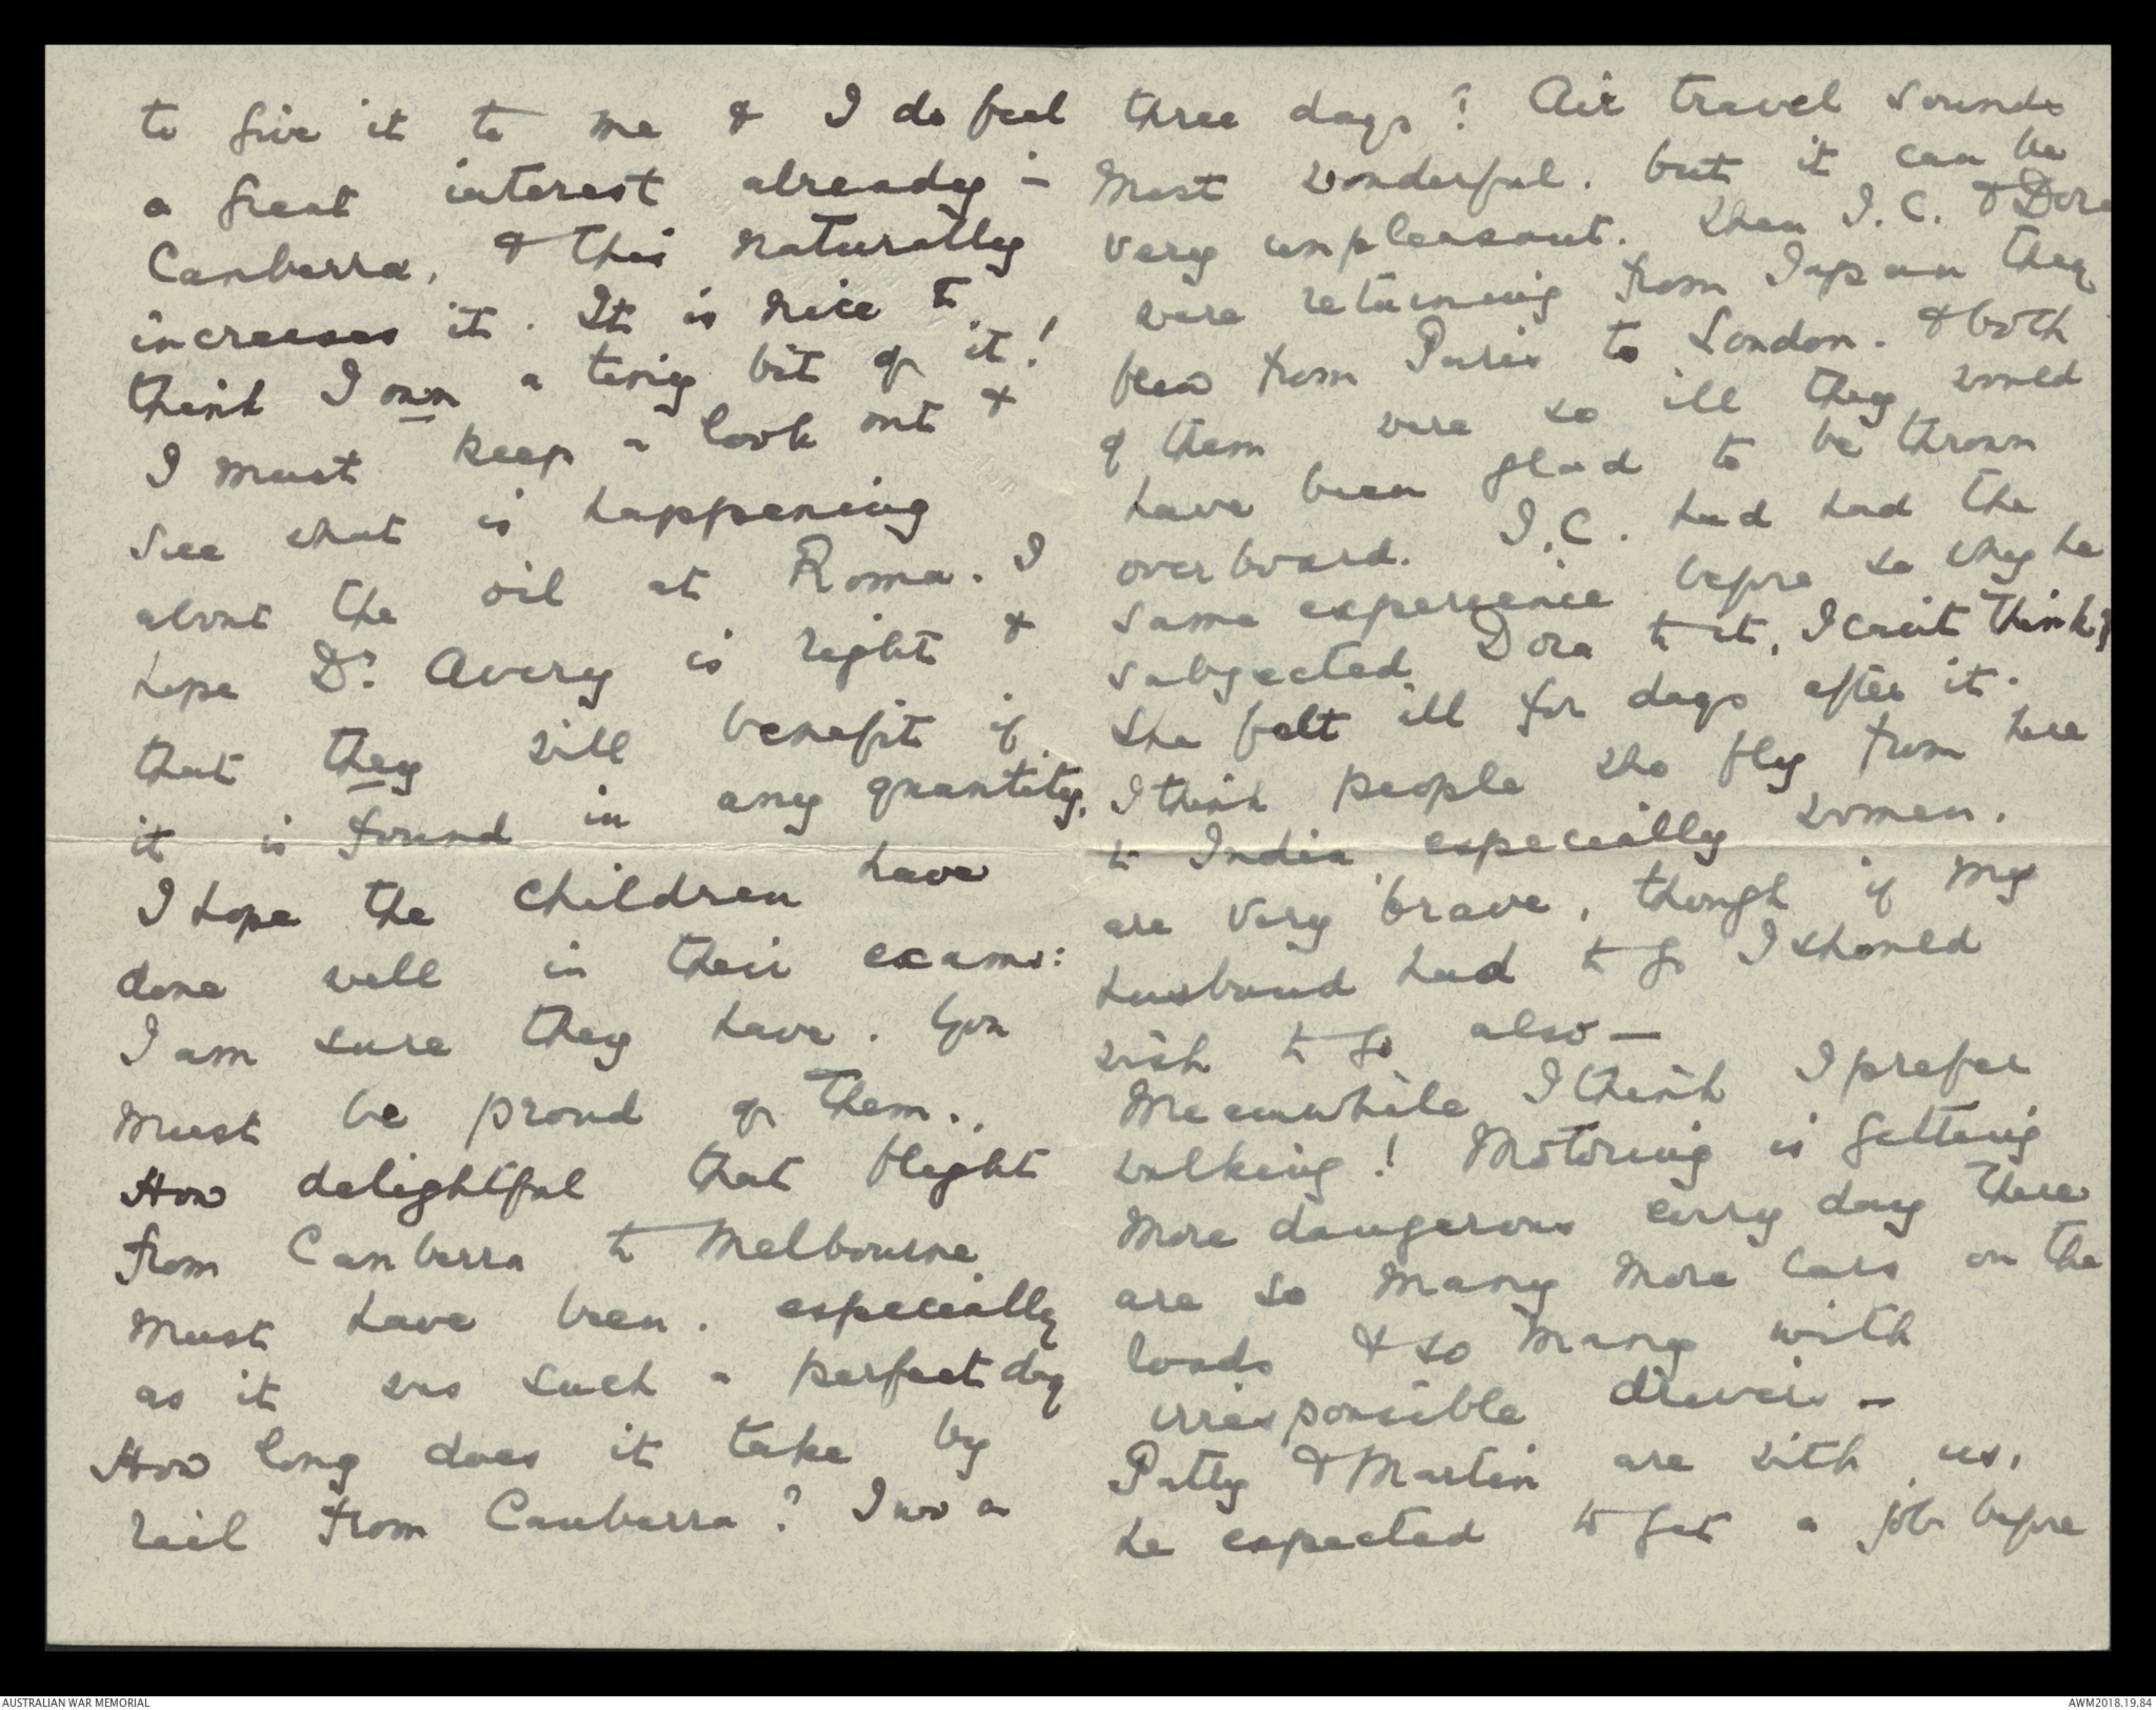 to give it to me & I do feel
a great interest already in
Canberra, & this naturally
increases it. It is nice to
think I own a tiny bit of it!
I must keep a look out &
see what is happening
about the oil at Roma. I
hope Dr. Avery is right &
that they will benefit if
it is found in any quantity.
I hope the children have
done well in their exams:
I am sure they have. You
must be proud of them.
How delightful that flight
from Canberra to Melbourne
must have been. especially
as it was such a perfect day
How long does it take by
rail from Canberra? Two or
three days? Air travel sounds
most wonderful. but it can be
very unpleasant. When I.C. & Dora
were returning from Japan they
flew from Paris to London. & both
of them were so ill they would
have been glad to be thrown
overboard. I.C. had had the
same experience before so why he
subjected Dora to it, I can't think,
She felt ill for days after it.
I think people who fly from here
to India, especially women.
are very brave, though if my
husband had to go I should
wish to go also —
Meanwhile I think I prefer
walking! Motoring is getting
more dangerous every day there
are so many more cars on the
roads & so many with
irresponsible drivers —
Patty & Martin are with us,
he expected to get a job before
AUSTRALIAN WAR MEMORIAL
AWM2018.19.84